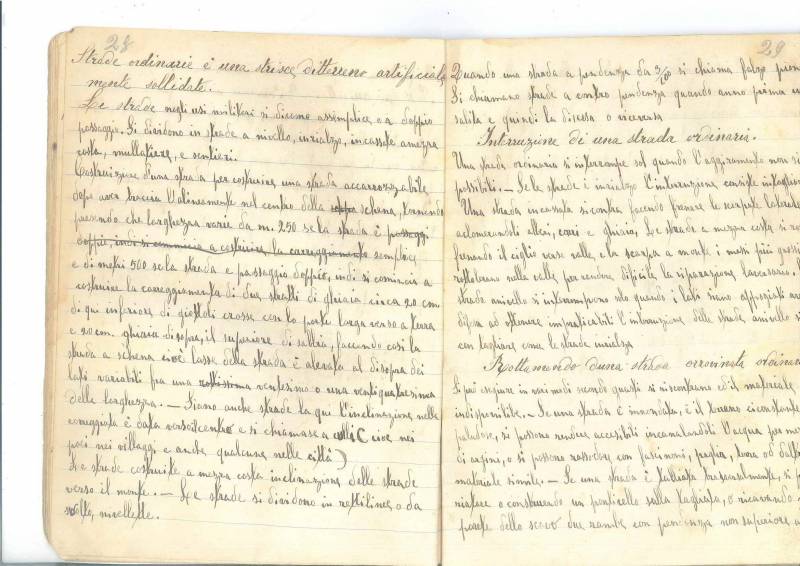 28
Strade ordinarie è una striscia di tterreno artificial
mente sollidate.
Le strade negli usi militari si dicono assemplice, o a doppio
passaggio. Si dividono in strade a nivello, inrialzo, incassate amezza
costa, mullatiere, e sentieri.
Costruizione d'una strada per costruire una strada accarrozzabile
dopo aver tracciata l'alineamento nel centro della schena, tenendo
presendo che larghezza varia da m. 250 se la strada è passaggi
doppio, indi si comincia a costruire la carreggiamento semplice
e di metri 500 se la strada e passaggio doppio, indi si comincia a
costruire la carreggiamenta di due stratti di ghiaia circa 20 cm
di qui inferiore di giottoli crosse con la parte larga verso a terra
e 20 cm. ghiaia disopra, il superiore di sabbia, faccendo così la
strada a schena cioè lasse della strada è alevata al disopra dei
lati variabili fra una ventesimo o una ventiquatresima
della larghezza. — Siano anche strade la qui l'inclinazione nella
è data verso il centro e si chiamasa a C cioe nei
paei nei villaggi e anche qualcune nelle città)
Le strade costruite a mezza costa inclinazione delle strade
verso il monte. — Le strade si dividono in rettilineo o da
nivellette.
29
Quando una strada a pendenza da 3/100 si chiama falzo pian
Si chiamano strade a contro pendenza quando anno prima u
salita e quindi la discesa o viceversa
Interruzione di una strada ordinaria.
Una strada ordinaria si interrompe sol quando l'aggiramento non si
possibili. — Se le strade è inrialzo l'interruzione consiste intaglian
Una strada incassata si contra facendo frenare le scarpate laterale
aclomerandoti alberi, carri e ghiaia, Le strada a mezza costa si ro
frenando il ciglio verso valle, e la scarpa a monte i massi più grossi
rottolerano nella valle, per rendere difficile la riparazione
strada anivello si interrompono solo quando i lati siano appoggiati a
difesa ad ottenere impraticabili l'interruzione delle strade anivello si
con tagliare come le strade inrialza
Riattamando duna strada rovinata ordinar
Si può eseguire in vari modi secondo guasti si riscontrano ed il materiale
indisponibile. — Se una strada è innondata, è il terreno circostante
paludoso, si possono rendere accessibili incanalandoli l'acqua per mez
di argini, o si possono rassodare con fascinoni, paglia, terra od altro
materiale simile. — Se una strada è tagliata trasversalmente, si p
riatare o construendo un ponticello sulla tagliata, o ricavando
parete dello scavo due rampe con pendenza non superiore a